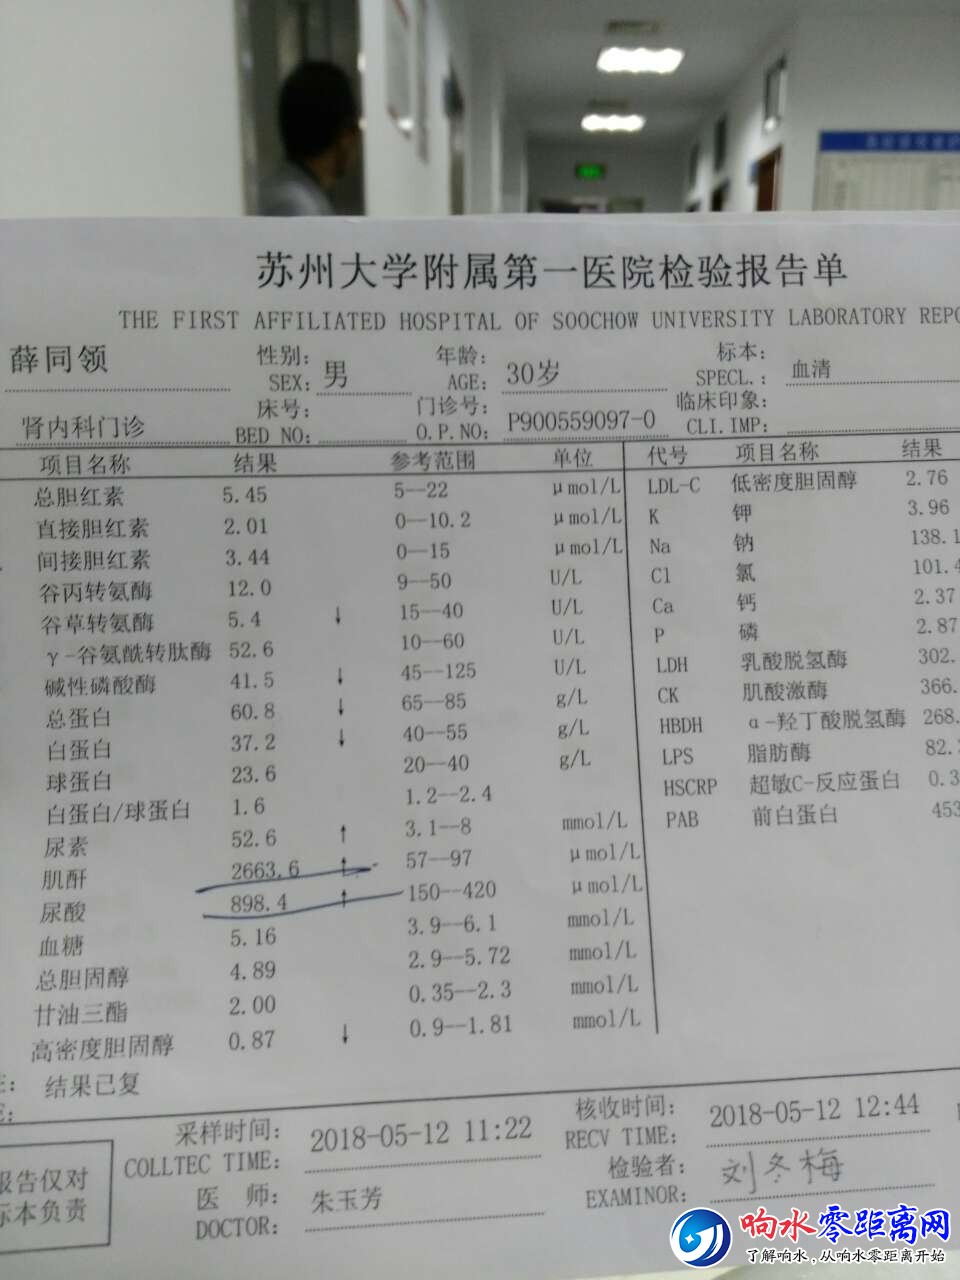 苏州大学附属第一医院检验报告单
THE FIRST AFFILIATED HOSPITAL OF SOOCHOW UNIVERSITY LABORATORY REPO
薛同领 性别: 男 年龄: 30岁 标本: 血清
SEX: AGE: SPECL.:
肾内科门诊 床号: 门诊号: P900559097-0 临床印象:
BED NO: O.P.NO: CLI.IMP:
项目名称 结果 参考范围 单位 代号 项目名称 结果
总胆红素 5.45 5--22 μmol/L LDL-C 低密度胆固醇 2.76
直接胆红素 2.01 0--10.2 μmol/L K 钾 3.96
间接胆红素 3.44 0--15 μmol/L Na 钠 138.1
谷丙转氨酶 12.0 9--50 U/L Cl 氯 101.4
谷草转氨酶 5.4 ↓ 15--40 U/L Ca 钙 2.37
γ-谷氨酰转肽酶 52.6 10--60 U/L P 磷 2.87
碱性磷酸酶 41.5 ↓ 45--125 U/L LDH 乳酸脱氢酶 302.
总蛋白 60.8 ↓ 65--85 g/L CK 肌酸激酶 366.
白蛋白 37.2 ↓ 40--55 g/L HBDH α-羟丁酸脱氢酶 268.
球蛋白 23.6 20--40 g/L LPS 脂肪酶 82.
白蛋白/球蛋白 1.6 1.2--2.4 HSCRP 超敏C-反应蛋白 0.3
尿素 52.6 ↑ 3.1--8 mmol/L PAB 前白蛋白 453
肌酐 2663.6 ↑ 57--97 μmol/L
尿酸 898.4 ↑ 150--420 μmol/L
血糖 5.16 3.9--6.1 mmol/L
总胆固醇 4.89 2.9--5.72 mmol/L
甘油三酯 2.00 0.35--2.3 mmol/L
高密度胆固醇 0.87 ↓ 0.9--1.81 mmol/L
结果已复
E:
报告仅对
标本负责
采样时间: 2018-05-12 11:22 核收时间: 2018-05-12 12:44
COLLTEC TIME: RECV TIME:
医 师: 朱玉芳 检验者: 刘冬梅
DOCTOR: EXAMINOR:
响水零距离网
了解响水,从响水零距离开始